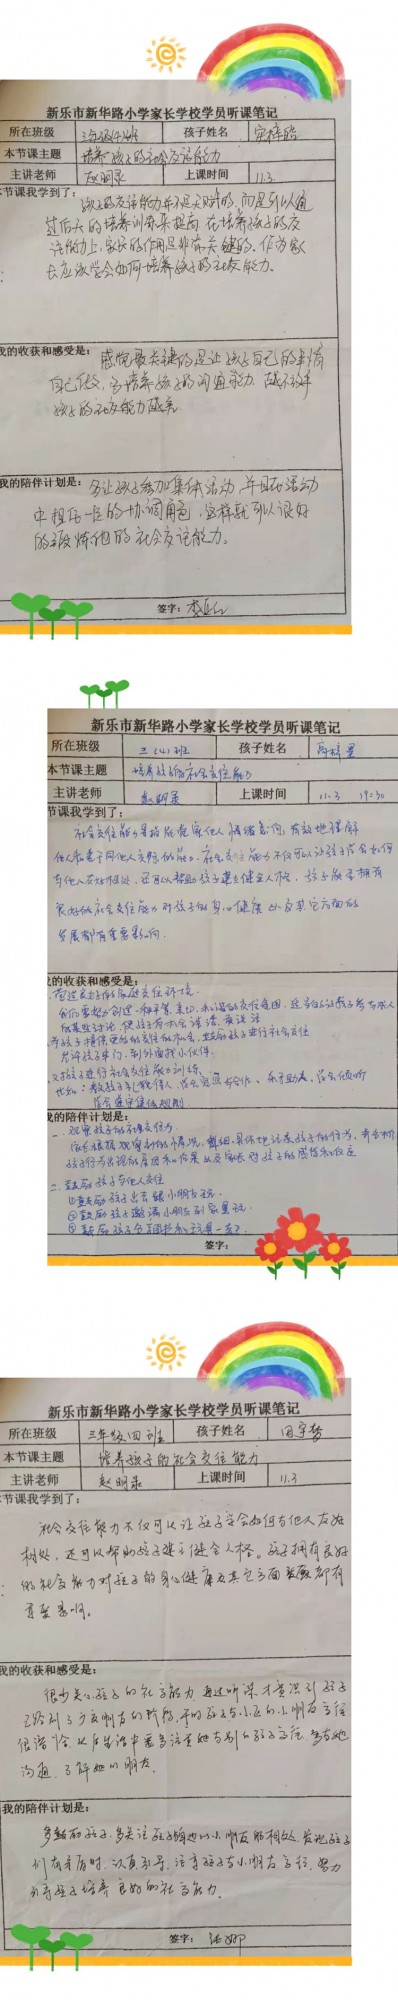 新乐市新华路小学家长学校学员听课笔记
所在班级 三年级四班 孩子姓名
本节课主题 培养孩子的社会交往能力
主讲老师 赵明录 上课时间 11.3
本节课我学到了：
孩子的交往能力并不是天赋的，而是可以通
过后天的培养训练来提高，在培养孩子的交
往能力上，家长的作用是非常关键的，作为家
长应该学会如何培养孩子的社交能力。
我的收获和感受是：感觉最关键的是让孩子自己的事情
自己做，多培养孩子的沟通能力
孩子的社交能力
我的陪伴计划是：多让孩子参加集体活动，并且在活动
中担任一定的协调角色，这样就可以很好
的锻炼他的社会交往能力。
签字：
新乐市新华路小学家长学校学员听课笔记
所在班级 三（四）班 孩子姓名
本节课主题 培养孩子的社会交往能力
主讲老师 赵明录 上课时间 11.3 19:30
节课我学到了：
社会交往能力是指能觉察他人情绪意向，有效地理解
他人和善于同他人交际的能力。社会交往能力不仅可以让孩子学会如何
与他人友好相处，还可以帮助孩子建立健全人格，孩子能否拥有
良好的社会交往能力对孩子的身心健康以及其它方面的
发展都有重要影响。
的收获和感受是：
营造良好的家庭交往环境
我们要努力创造一种平等、亲切、和谐的交往氛围，
给孩子提供更多的交往的机会，鼓励孩子进行社会交往
允许孩子串门，到外面找小伙伴
对孩子进行社会交往能力训练
学会遵守集体规则
的陪伴计划是：
一、观察孩子的不良交往行为
家长根据观察到的情况，详细、具体地记录孩子的行为，并分析
孩子行为出现的原因和后果以及家长对孩子的感情和反应
二、鼓励孩子与他人交往
①鼓励孩子出去跟小朋友玩
②鼓励孩子邀请小朋友到家里玩
③鼓励孩子
签字：
新乐市新华路小学家长学校学员听课笔记
所在班级 三年级四班 孩子姓名 田宇梦
本节课主题 培养孩子的社会交往能力
主讲老师 赵明录 上课时间 11.3
节课我学到了：
社会交往能力不仅可以让孩子学会如何与他人友好
相处，还可以帮助孩子建立健全人格。孩子拥有良好
的社会能力对孩子的身心健康及其它方面发展都有
重要影响。
我的收获和感受是：
很少关心孩子的社交能力，通过听课才意识到孩子
已经到了交朋友的阶段，平时孩子与小区的小朋友交往
很谐恰，以后生活中要多注意她与别的孩子交往，多与她
沟通，了解她的朋友。
我的陪伴计划是：
多鼓励孩子，多关注孩子跟她的小朋友的相处，发现孩子
们有矛盾时，认真引导，注意孩子与小朋友交往，努力
引导孩子培养良好的社交能力。
签字：